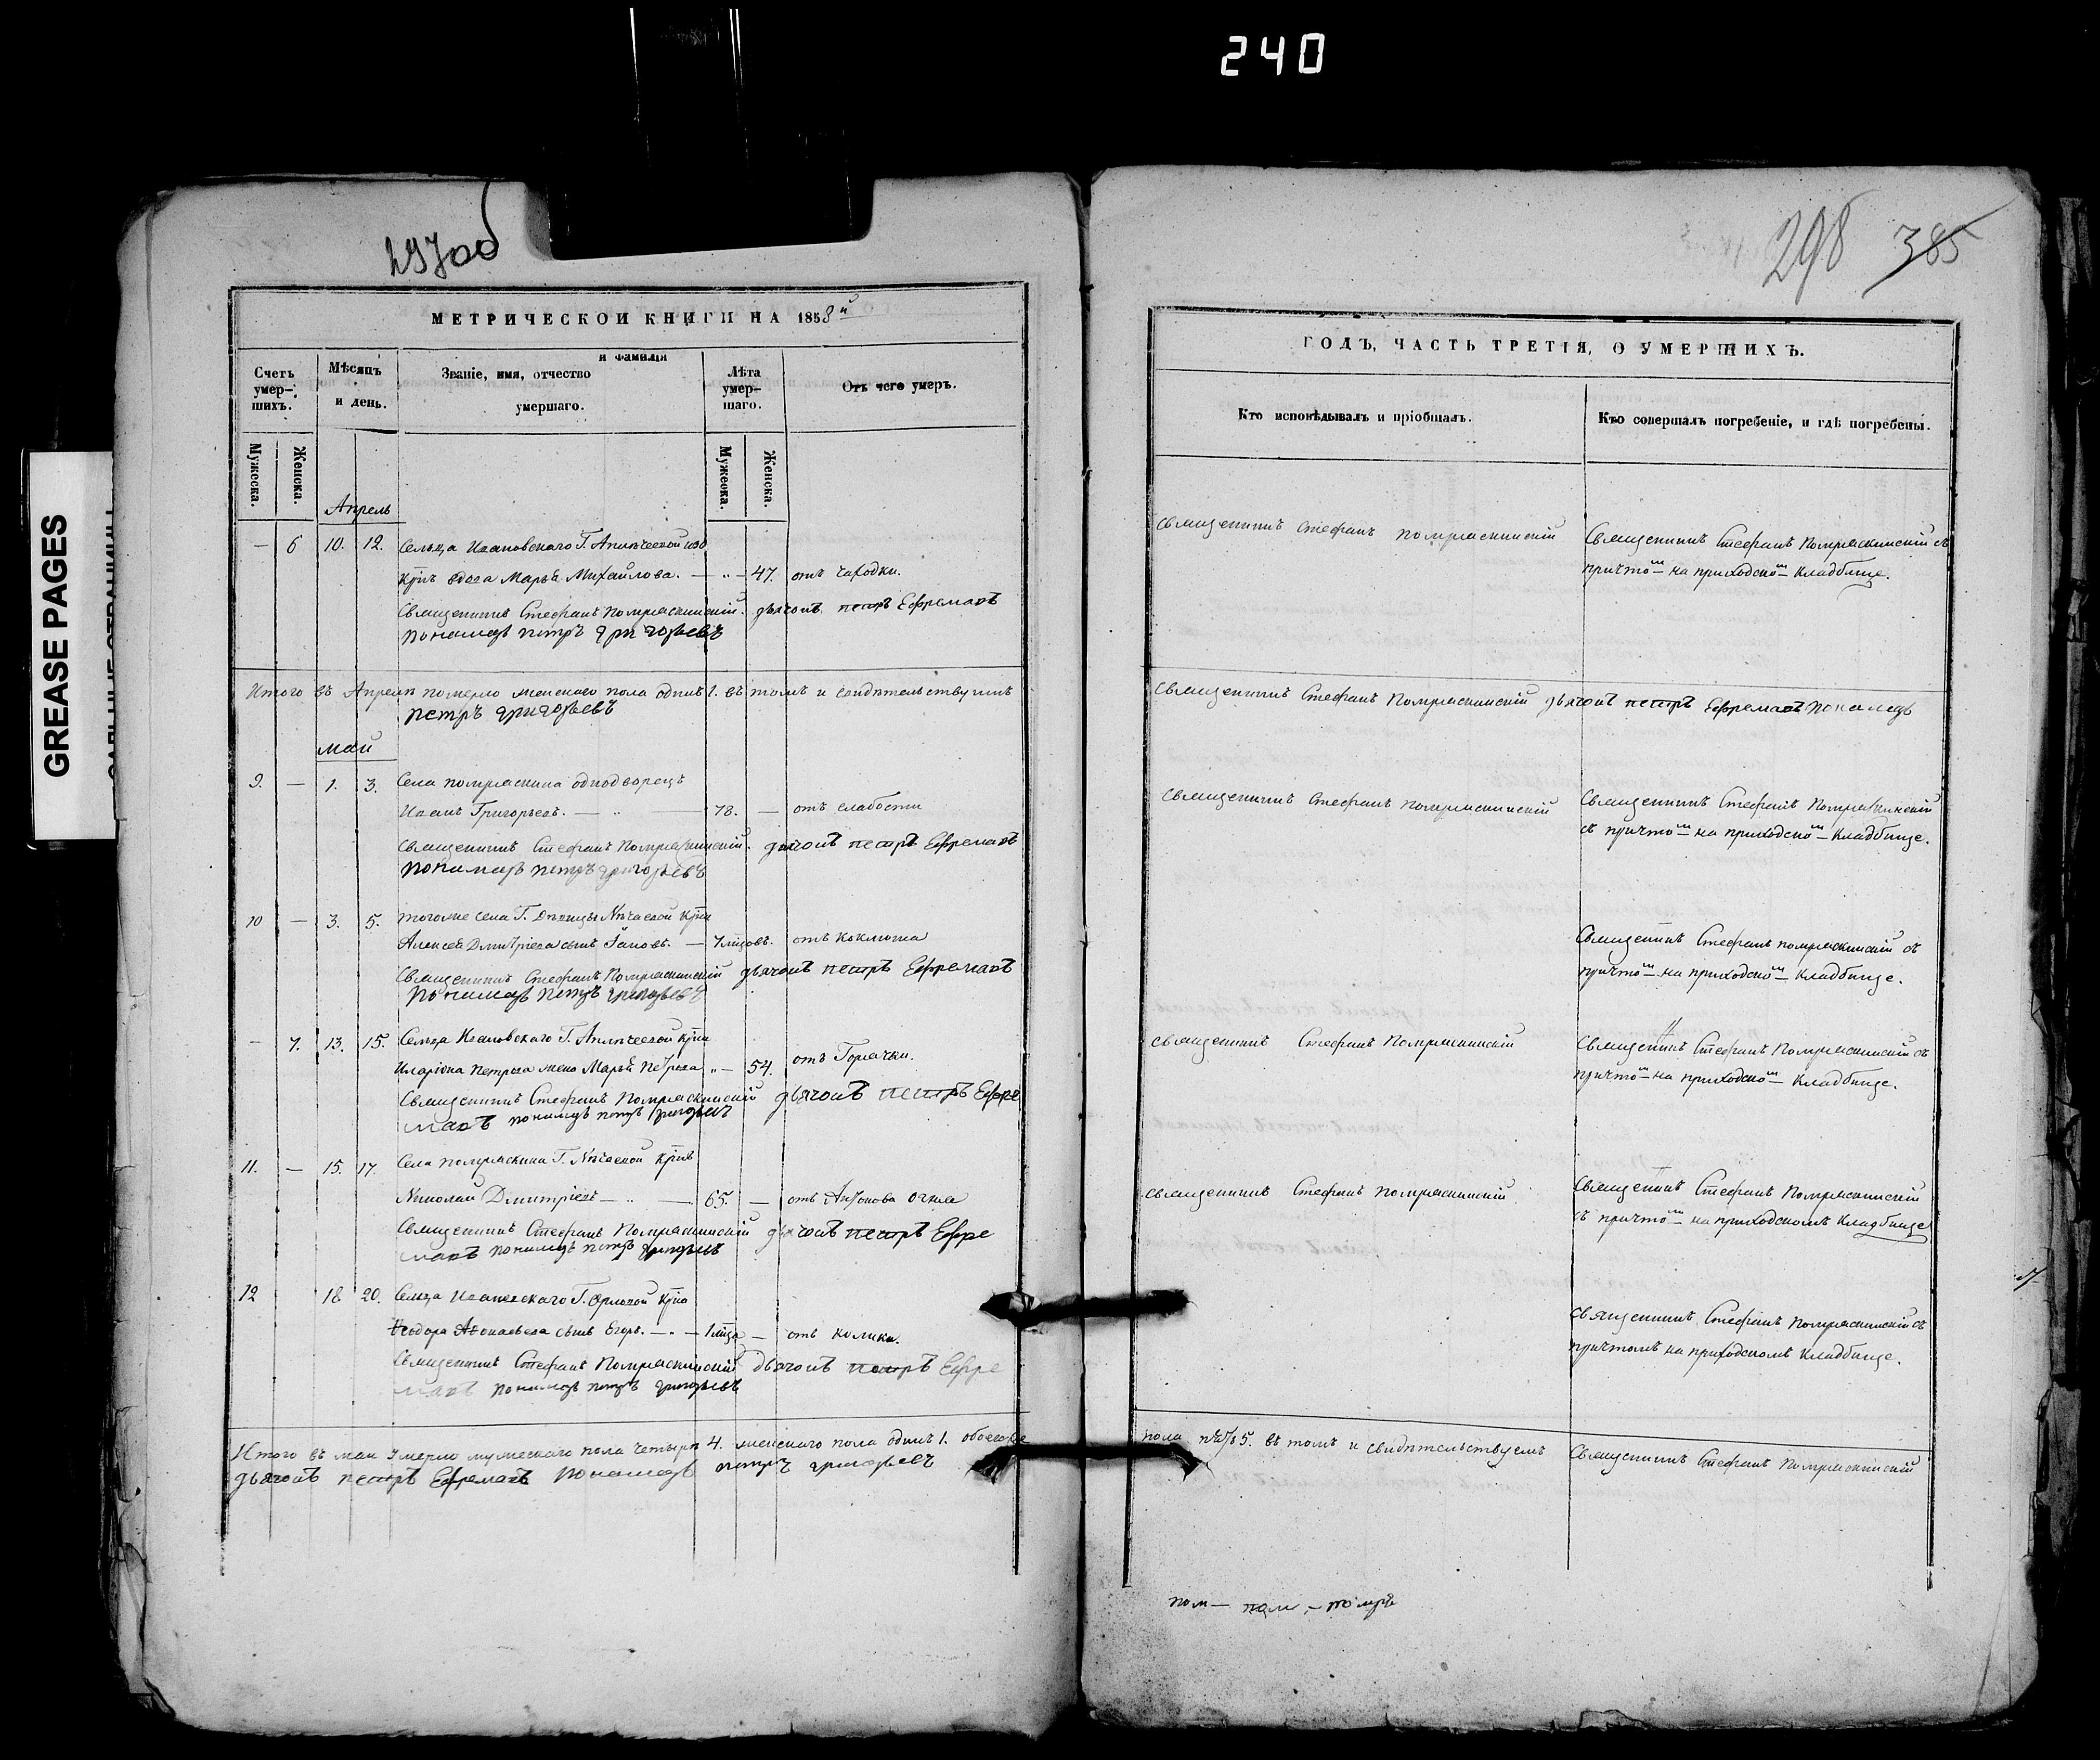 240
GREASE PAGES
297об
МЕТРИЧЕСКОЙ КНИГИ НА 1858й
Счетъ умер-шихъ.
Мѣсяцъ и день.
Званіе, имя, отчество и фамилія умершаго.
Лѣта умер-шаго.
Отъ чего умеръ.
Мужеска.
Женска.
Мужеска.
Женска.
Апрель
— 6 10. 12. Сельца Ивановскаго Г.
вдова Марья Михайлова. — „ — 47. отъ чахотки.
Священникъ Стефанъ Помряскинскій. дьячокъ петръ Ефремовъ
пономарь петръ григорьевъ
Итого въ Апрелѣ померло женскаго пола одинъ 1. въ томъ и свидѣтельствуютъ
петръ григорьевъ
май
9. — 1. 3. Села помряскина однодворецъ
Иванъ Григорьевъ. — „ — 78. — отъ слабости
Священникъ Стефанъ Помряскинскій. дьячокъ петръ Ефремовъ
пономарь петръ григорьевъ
10 — 3. 5. тогоже села Г. Дѣвицы Нѣчаевой крѣн
Алексѣя Дмитріева сынъ — 7 мцовъ. отъ коклюша
Священникъ Стефанъ Помряскинскій дьячокъ петръ Ефремовъ
пономарь петръ григорьевъ
— 7. 13. 15. Сельца Ивановскаго Г.
Иларіона Петрова жена Марья Петрова „ — 54. отъ Горячки.
Священникъ Стефанъ Помряскинскій дьячокъ петръ Ефре
мовъ пономарь петръ григорьевъ
11. — 15. 17. Села помряскина Г. Нѣчаевой крѣнъ
Николай Дмитріевъ — „ — 65. — отъ Антонова огня
Священникъ Стефанъ Помряскинскій дьячокъ петръ Ефре
мовъ пономарь петръ григорьевъ
12 18 20. Сельца Ивановскаго Г. Орловой
Ѳеодора сынъ Егоръ. — „ — 1 мца — отъ колики
Священникъ Стефанъ Помряскинскій дьячокъ петръ Ефре
мовъ пономарь петръ григорьевъ
Итого въ маи умерло мужескаго пола четыри 4. женскаго пола одинъ 1. обоего
дьячокъ петръ Ефремовъ пономарь петръ григорьевъ
298 385
ГОДЪ, ЧАСТЬ ТРЕТІЯ, О УМЕРШИХЪ.
Кто исповѣдывалъ и пріобщалъ.
Кто совершалъ погребеніе, и гдѣ погребены.
священникъ Стефанъ помряскинскій
Священникъ Стефанъ Помряскинскій съ
причтомъ на приходскомъ кладбище.
священникъ Стефанъ Помряскинскій дьячокъ петръ Ефремовъ пономарь
священникъ Стефанъ помряскинскій
Священникъ Стефанъ Помряскинскій
съ причтомъ на приходскомъ кладбище.
Священникъ Стефанъ помряскинскій съ
причтомъ на приходскомъ кладбище.
священникъ Стефанъ Помряскинскій
Священникъ Стефанъ Помряскинскій съ
причтомъ на приходскомъ кладбище.
священникъ Стефанъ помряскинскій
Священникъ Стефанъ Помряскинскій
съ причтомъ на приходскомъ кладбище
священникъ Стефанъ помряскинскій съ
причтомъ на приходскомъ кладбище.
пола пять 5. въ томъ и свидѣтельствуемъ Священникъ Стефанъ Помряскинскій
пом —